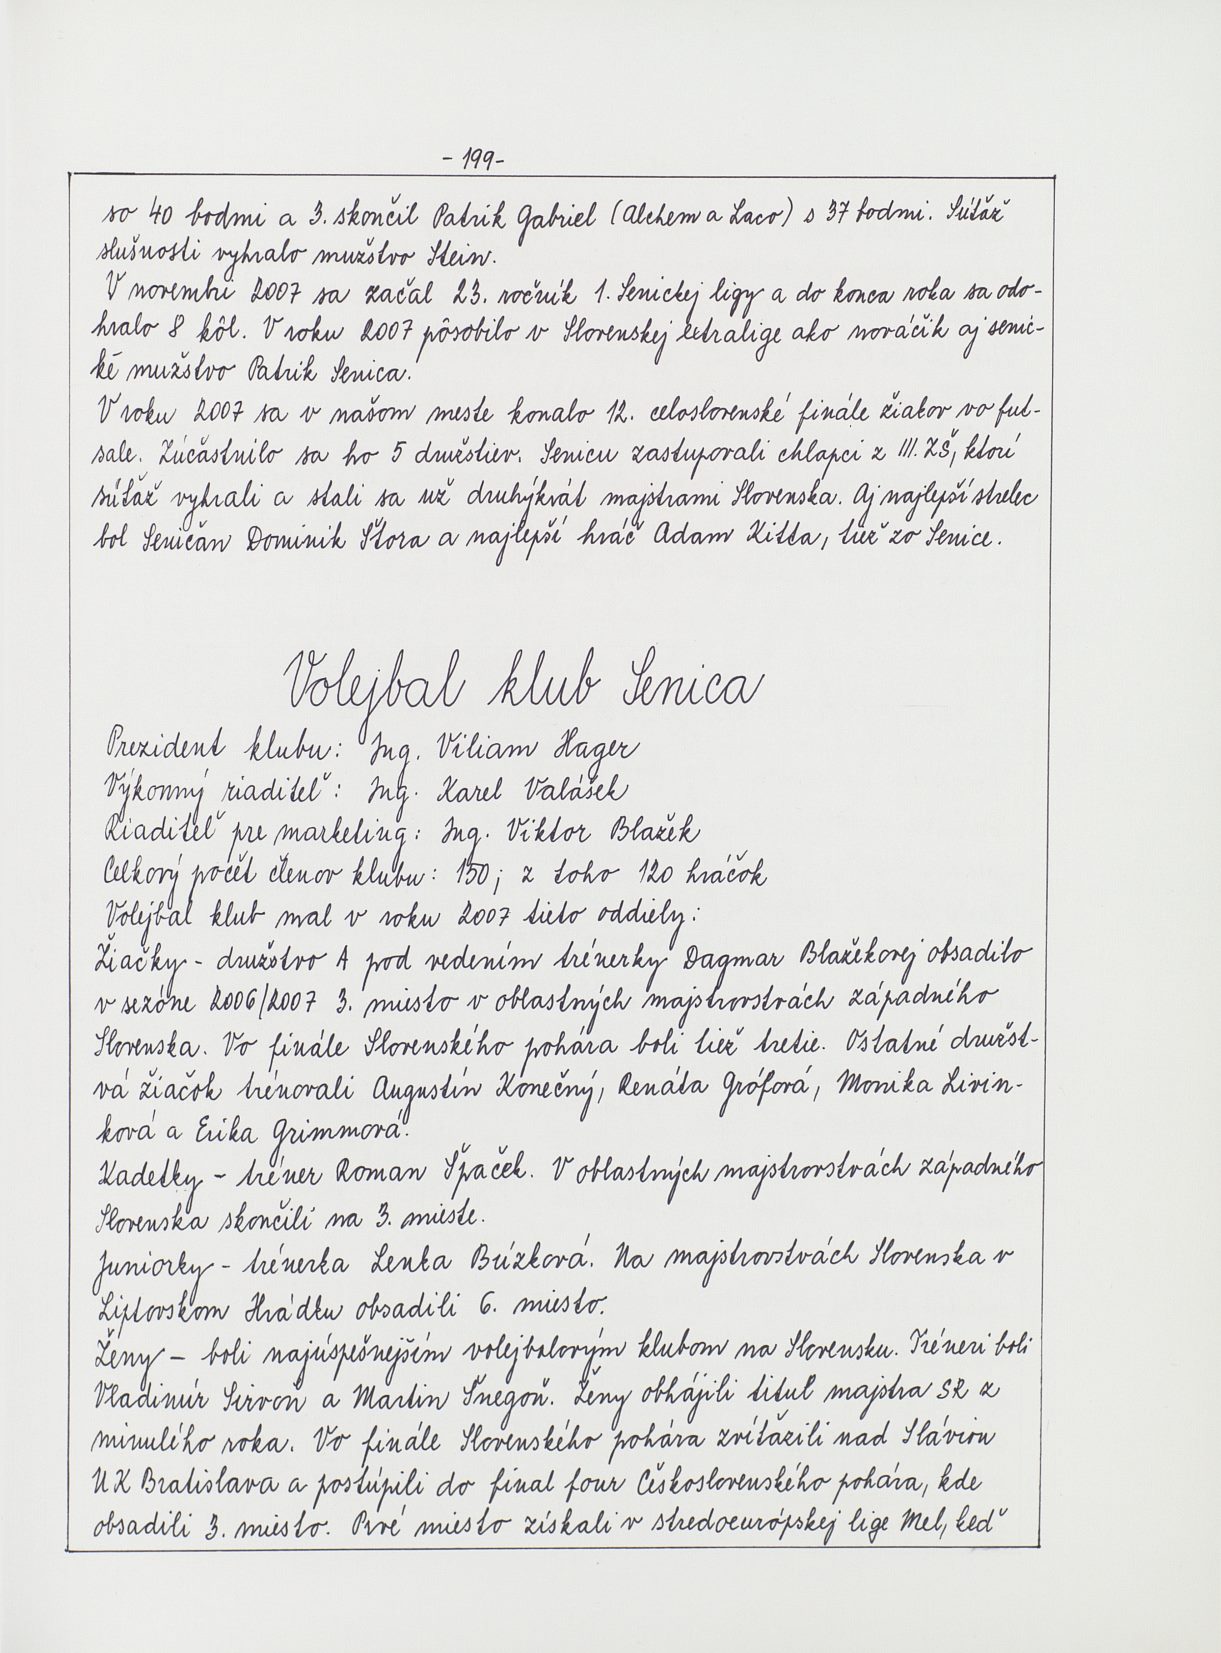 - 199-
so 40 bodmi a 3. skončil Patrik Gabriel (Alchem a Laco) s 37 bodmi. Súťaž
slušnosti vyhralo mužstvo Stein.
V novembri 2007 sa začal 23. ročník 1. Senickej ligy a do konca roka sa odo-
hralo 8 kôl. V roku 2007 pôsobilo v Slovenskej extralige ako nováčik aj senic-
ké mužstvo Patrik Senica.
V roku 2007 sa v našom meste konalo 12. celoslovenské finále žiakov vo fut-
sale. Zúčastnilo sa ho 5 družstiev. Senicu zastupovali chlapci z III. ZŠ, ktorí
súťaž vyhrali a stali sa už druhýkrát majstrami Slovenska. Aj najlepší strelec
bol Seničan Dominik Štora a najlepší hráč Adam Kitta, tiež zo Senice.
Volejbal klub Senica
Prezident klubu: Ing. Viliam Hager
Výkonný riaditeľ: Ing. Karel Valášek
Riaditeľ pre marketing: Ing. Viktor Blažek
Celkový počet členov klubu: 150; z toho 120 hráčok
Volejbal klub mal v roku 2007 tieto oddiely:
Žiačky - družstvo A pod vedením trénerky Dagmar Blažekovej obsadilo
v sezóne 2006/2007 3. miesto v oblastných majstrovstvách západného
Slovenska. Vo finále Slovenského pohára boli tiež tretie. Ostatné družst-
vá žiačok trénovali Augustín Konečný, Renáta Grófová, Monika Livin-
ková a Erika Grimmová.
Kadetky - tréner Roman Špaček. V oblastných majstrovstvách západného
Slovenska skončili na 3. mieste.
Juniorky - trénerka Lenka Brízková. Na majstrovstvách Slovenska v
Liptovskom Hrádku obsadili 6. miesto.
Ženy - boli najúspešnejším volejbalovým klubom na Slovensku. Tréneri boli
Vladimír Sirvoň a Martin Šnegoň. Ženy obhájili titul majstra SR z
minulého roka. Vo finále Slovenského pohára zvíťazili nad Sláviou
UK Bratislava a postúpili do final four Československého pohára, kde
obsadili 3. miesto. Prvé miesto získali v stredoeurópskej lige Mel, keď